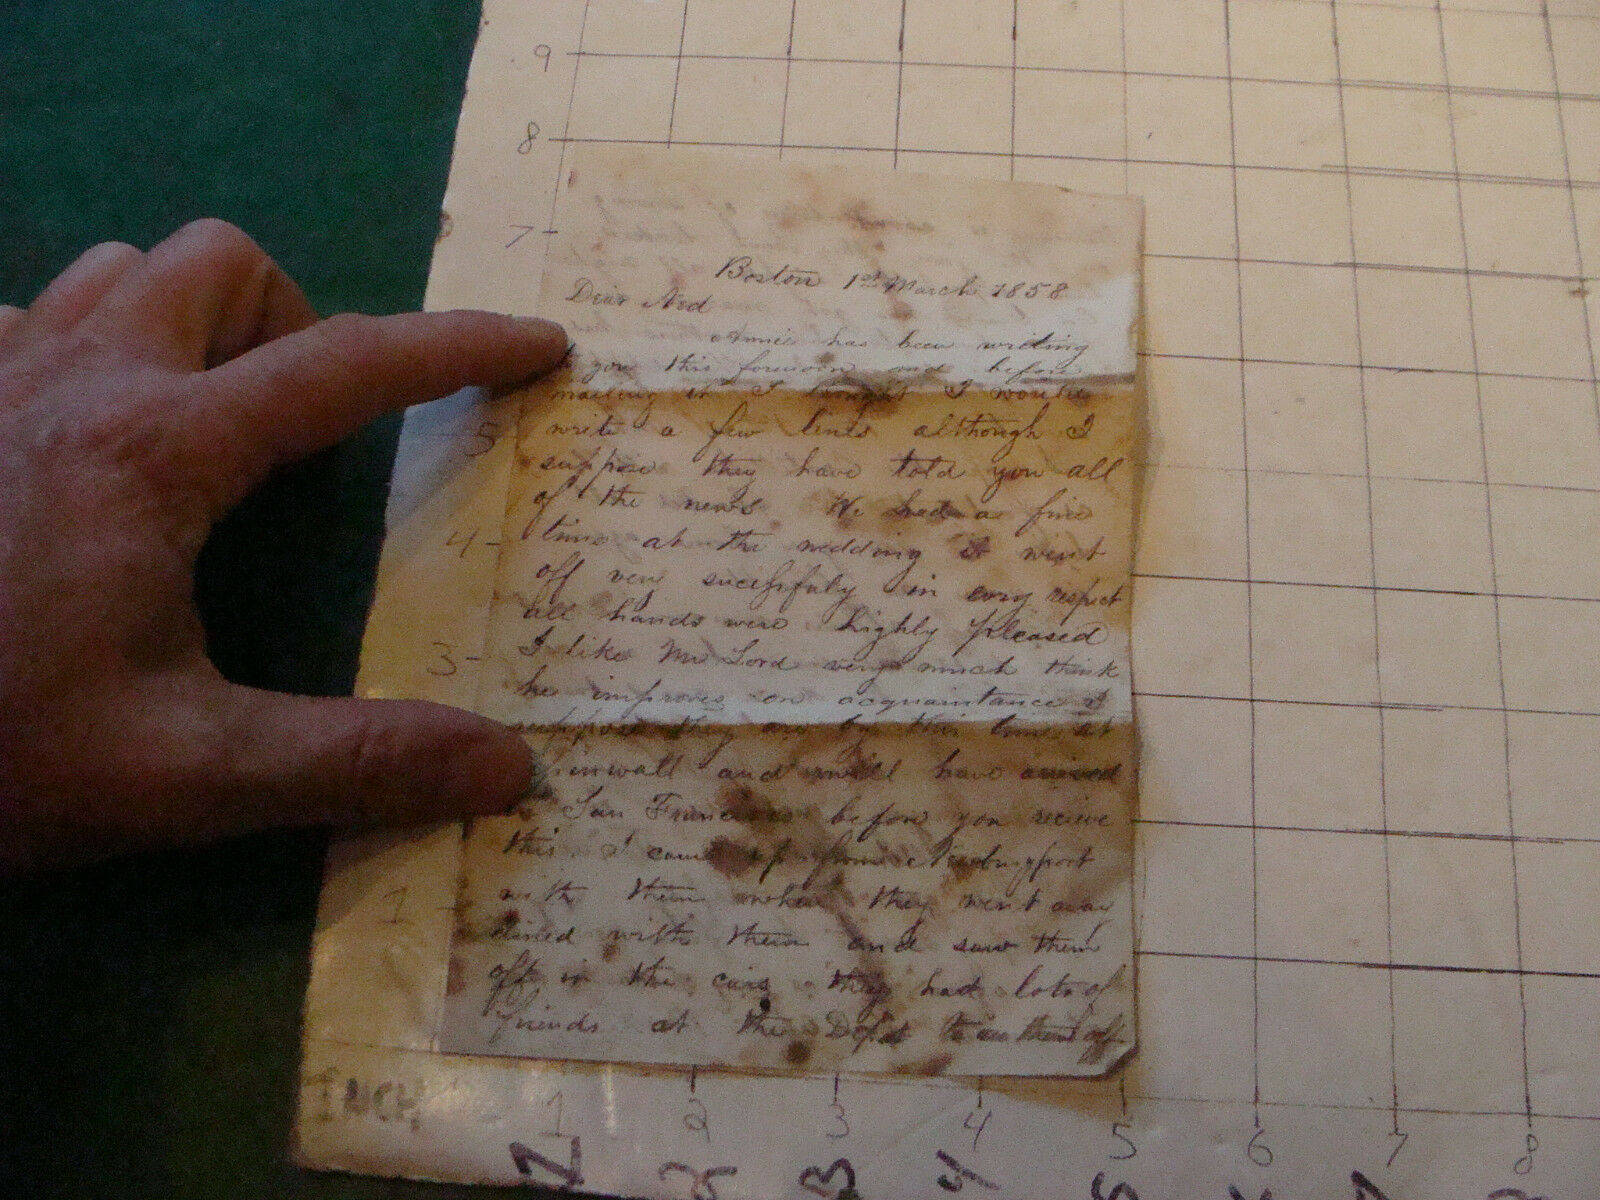 9
8
7
Boston 1st March 1858
Dear Ned
Annie has been writing
you this forenoon and before
mailing it I thought I would
write a few lines although I
5
suppose they have told you all
of the news We had a fine
4
time at the wedding it went
off very sucessfuly in every respect
all hands were highly pleased
3
I like Mr Lord very much think
he improves on acquaintance I
suppose they are by this time at
and will have arived
San Francisco before you recieve
this I came up from Newburyport
1
with them when they went away
dined with them and saw them
off in the cars they had lots of
friends at the Depot to see them off
INCH 1 2 3 4 5 6 7 8
1 2 3 4 5 6 7